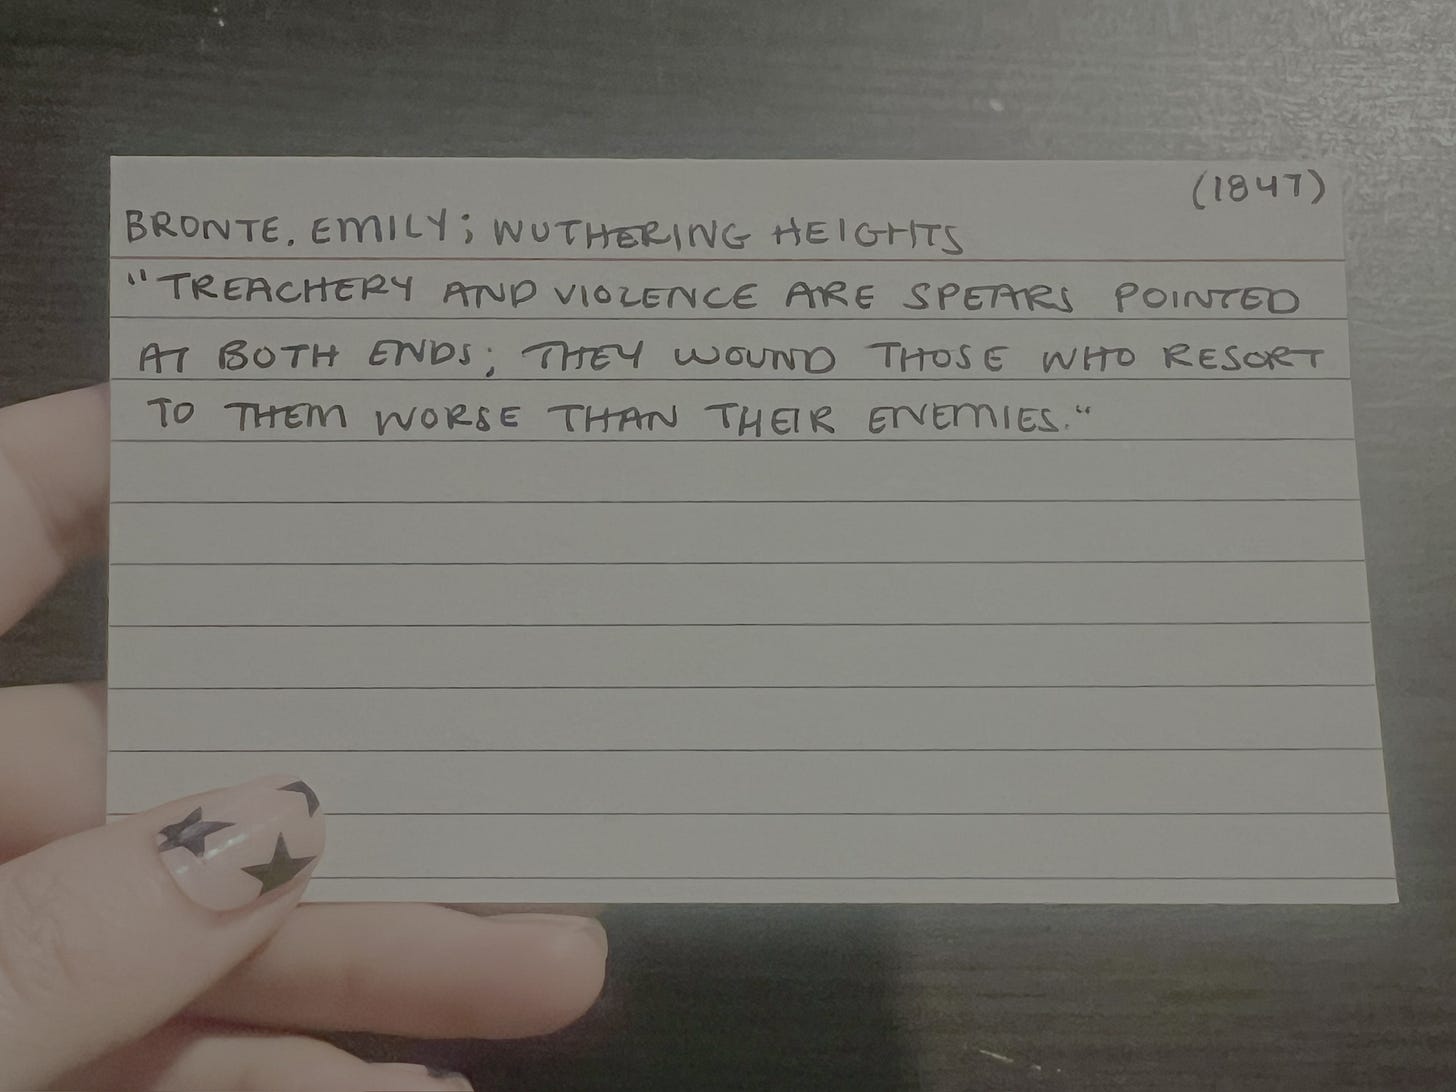 (1847)
BRONTE, EMILY; WUTHERING HEIGHTS
"TREACHERY AND VIOLENCE ARE SPEARS POINTED
AT BOTH ENDS; THEY WOUND THOSE WHO RESORT
TO THEM WORSE THAN THEIR ENEMIES."